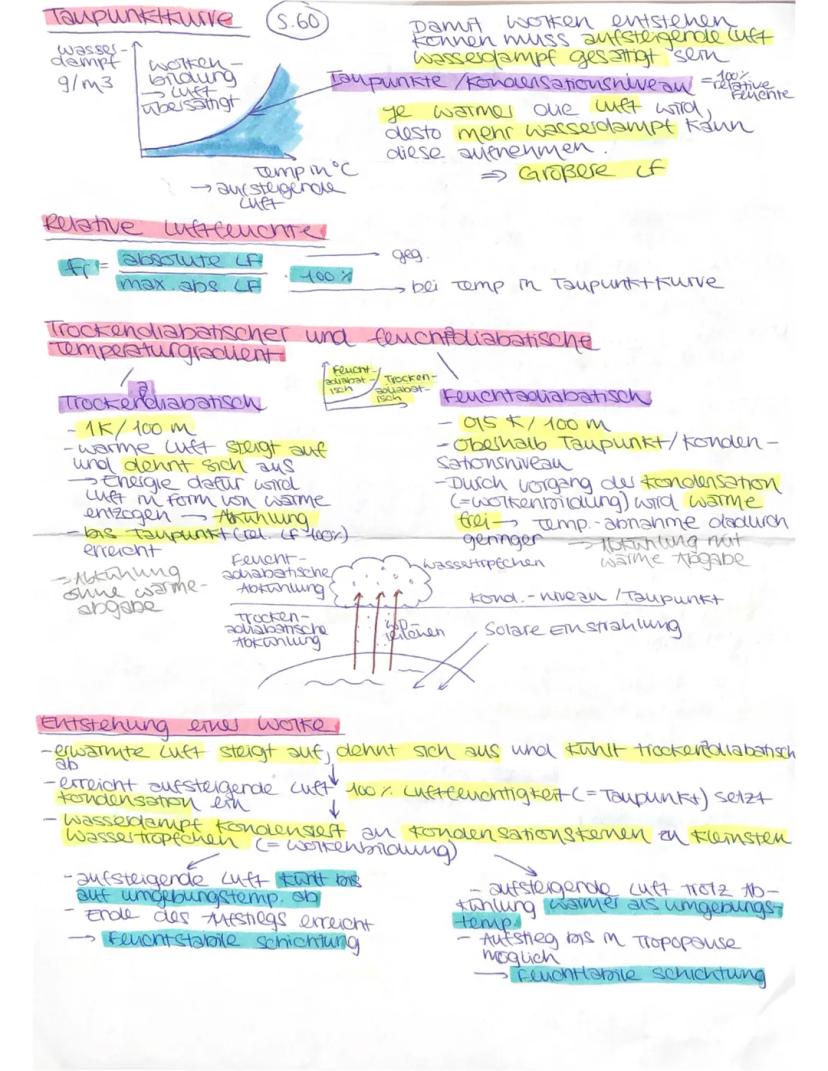 Taupunktkurve
S.60
Damit Wolken entstehen
können muss aufsteigende Luft
wasserdampf gesättigt sein
wasser-
dampf
g/m3
wolken-
bildung
→ Luft
übersättigt
Taupunkte /Kondensationsniveau = 100%
relative
Feuchte
Je wärmer die Luft wird,
desto mehr wasserdampf kann
diese aufnehmen.
⇒ Größere LF
Temp in °C
→ aufsteigende
Luft
Relative Luftfeuchte
fr = absolute LF / max. abs. LF · 100%
→ geg.
→ bei Temp in Taupunktkurve
Trockendiabatischer und feuchtadiabatische
Temperaturgradient
Feucht-
adiabat-
isch
Trocken-
adiabat-
isch
Trockenadiabatisch
- 1K/100 m
- warme Luft steigt auf
und dehnt sich aus
→ Energie dafür wird
Luft in Form von wärme
entzogen → Abkühlung
- bis Taupunkt (rel. LF 100%)
erreicht
→ Abkühlung
ohne wärme-
abgabe
Feuchtadiabatisch
- 0,5 K/100 m
- oberhalb Taupunkt/Konden-
sationsniveau
- Durch vorgang der Kondensation
(=wolkenbildung) wird wärme
frei → Temp.-abnahme dadurch
geringer
→ Abkühlung mit
wärme Abgabe
Feucht-
adiabatische
Abkühlung
wassertröpfchen
Kond.-niveau /Taupunkt
Trocken-
adiabatische
Abkühlung
Solare Einstrahlung
Entstehung einer Wolke
- erwärmte Luft steigt auf, dehnt sich aus und kühlt trockenadiabatisch
ab
- erreicht aufsteigende Luft 100% Luftfeuchtigkeit (= Taupunkt) setzt
Kondensation ein
- Wasserdampf kondensiert an Kondensationskernen zu kleinsten
Wassertröpfchen (= wolkenbildung)
- aufsteigende Luft kühlt bis
auf umgebungstemp. ab
- Ende des Aufstiegs erreicht
→ Feuchtstabile Schichtung
- aufsteigende Luft trotz Ab-
kühlung wärmer als umgebungs-
temp.
- Aufstieg bis in Tropopause
möglich
→ Feuchtlabile Schichtung